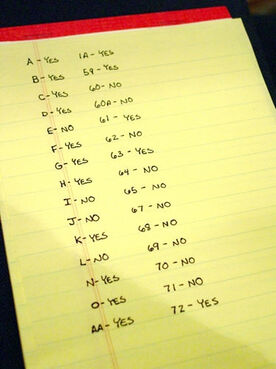 A - YES 1A - YES
B - YES 59 - YES
C - YES 60 - NO
D - YES 60A - NO
E - NO 61 - YES
F - YES 62 - NO
G - YES 63 - YES
H - YES 64 - NO
I - NO 65 - NO
J - NO 67 - NO
K - YES 68 - NO
L - NO 69 - NO
N - YES 70 - NO
O - YES 71 - NO
AA - YES 72 - YES